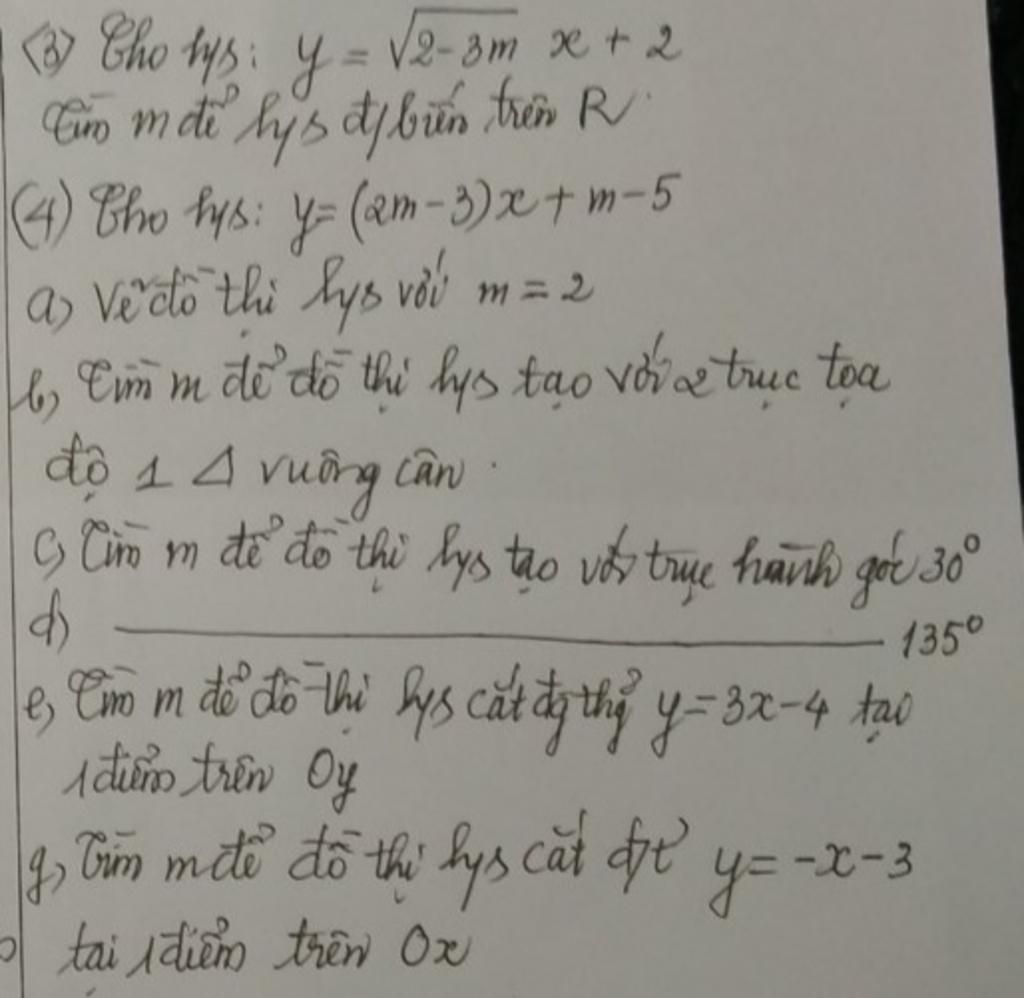 (3) Cho h/s: y = √2-3m x + 2
Tìm m để h/s đ/biến trên R
(4) Cho h/s: y=(2m-3)x+m-5
a, Vẽ đồ thị h/s với m = 2
b, Tìm m để đồ thị h/s tạo với 2 trục tọa
độ 1 Δ vuông cân.
c, Tìm m để đồ thị h/s tạo với trục hành góc 30°
d) ———————— 135°
e, Tìm m để đồ thị h/s cắt đg thg y=3x-4 tạo
1 điểm trên Oy
g, Tìm m để đồ thị h/s cắt đ/t y=-x-3
tại 1 điểm trên Ox